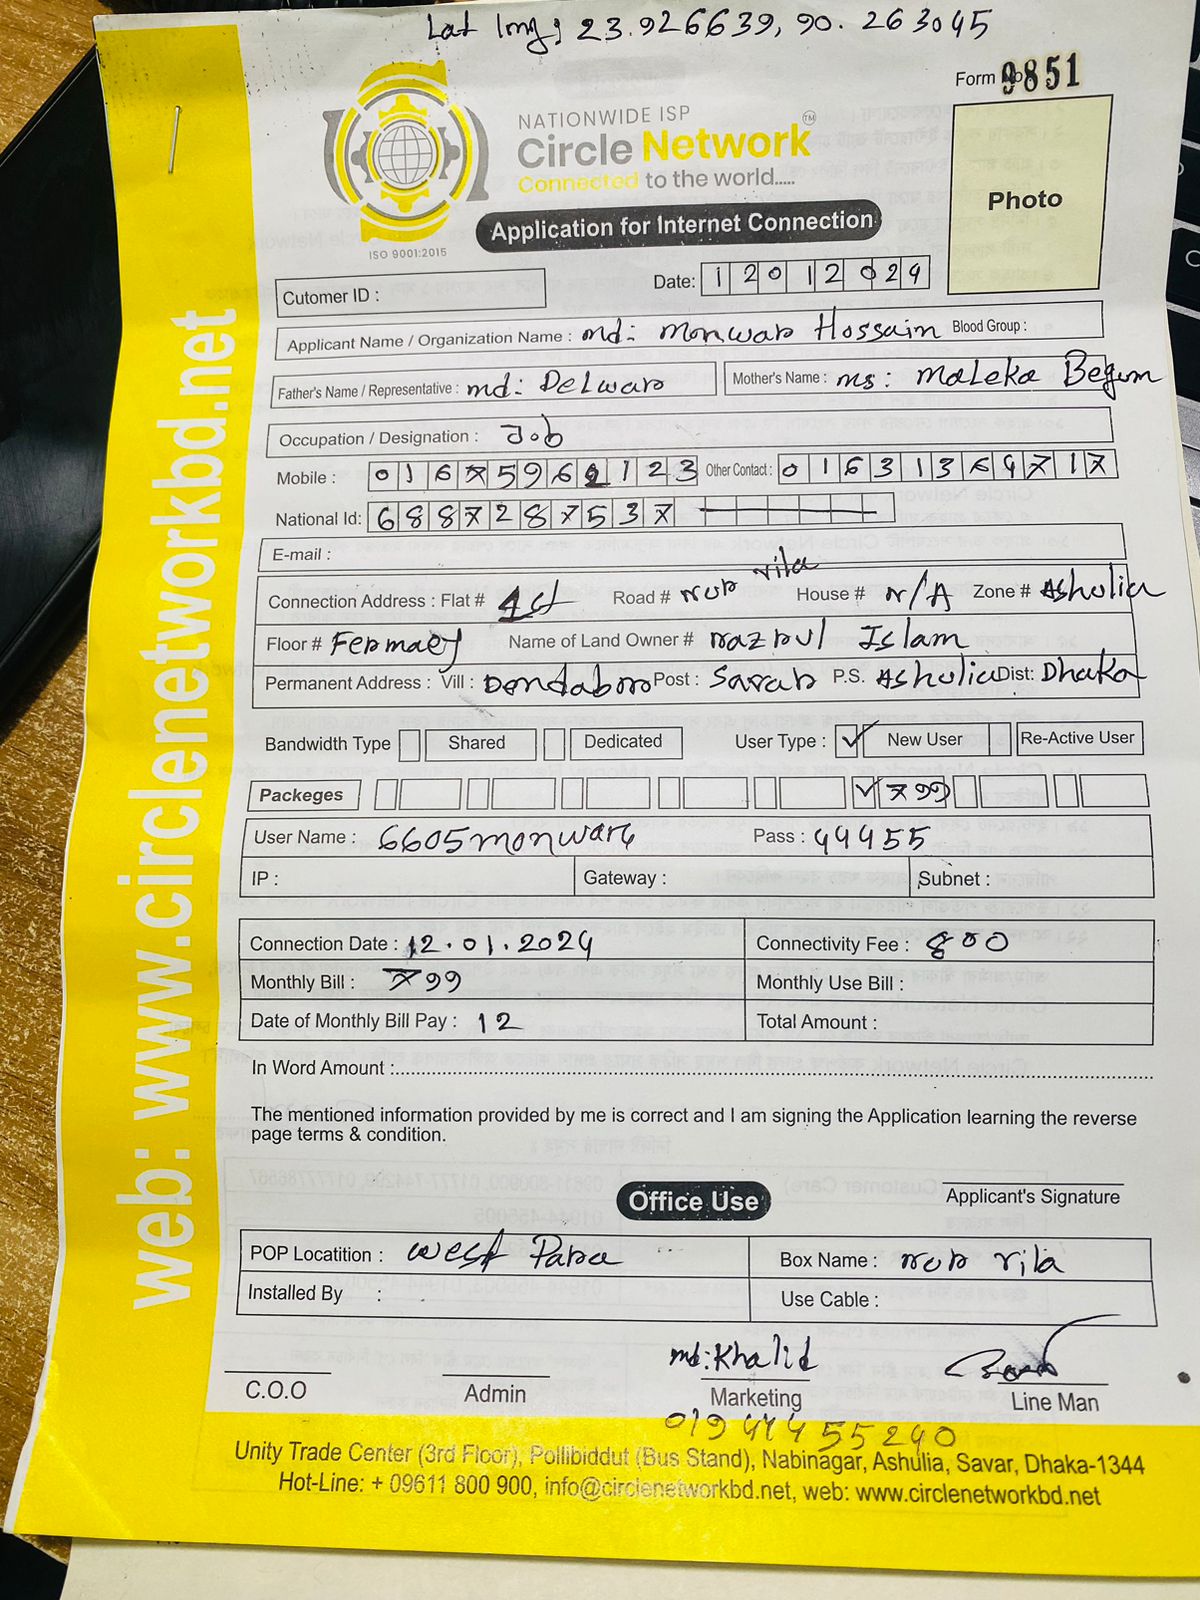 Lat long; 23.926639, 90.263045
Form No. 9851
NATIONWIDE ISP
Circle Network TM
Connected to the world.....
ISO 9001:2015
Application for Internet Connection
Photo
Cutomer ID :
Date: 12012024
Applicant Name / Organization Name : md: monwar Hossain Blood Group :
Father's Name / Representative : md: Delwar Mother's Name : ms: Maleka Begum
Occupation / Designation : Job
Mobile : 01675961123 Other Contact : 01631364717
National Id: 6887287537
E-mail :
Connection Address : Flat # 1st Road # nur vila House # N/A Zone # Ashulia
Floor # Name of Land Owner # nazrul Islam
Permanent Address : Vill : Dendabor Post : Savar P.S. Ashulia Dist: Dhaka
Bandwidth Type Shared Dedicated User Type : ✓ New User Re-Active User
Packeges ✓ 799
User Name : 6605monwar6 Pass : 44455
IP : Gateway : Subnet :
Connection Date : 12.01.2024 Connectivity Fee : 800
Monthly Bill : 799 Monthly Use Bill :
Date of Monthly Bill Pay : 12 Total Amount :
In Word Amount :
The mentioned information provided by me is correct and I am signing the Application learning the reverse
page terms & condition.
Applicant's Signature
Office Use
POP Locatition : west Para Box Name : nur vila
Installed By : Use Cable :
md: Khalid
C.O.O Admin Marketing Line Man
01944455240
Unity Trade Center (3rd Floor), Pollibiddut (Bus Stand), Nabinagar, Ashulia, Savar, Dhaka-1344
Hot-Line: + 09611 800 900, info@circlenetworkbd.net, web: www.circlenetworkbd.net
web: www.circlenetworkbd.net